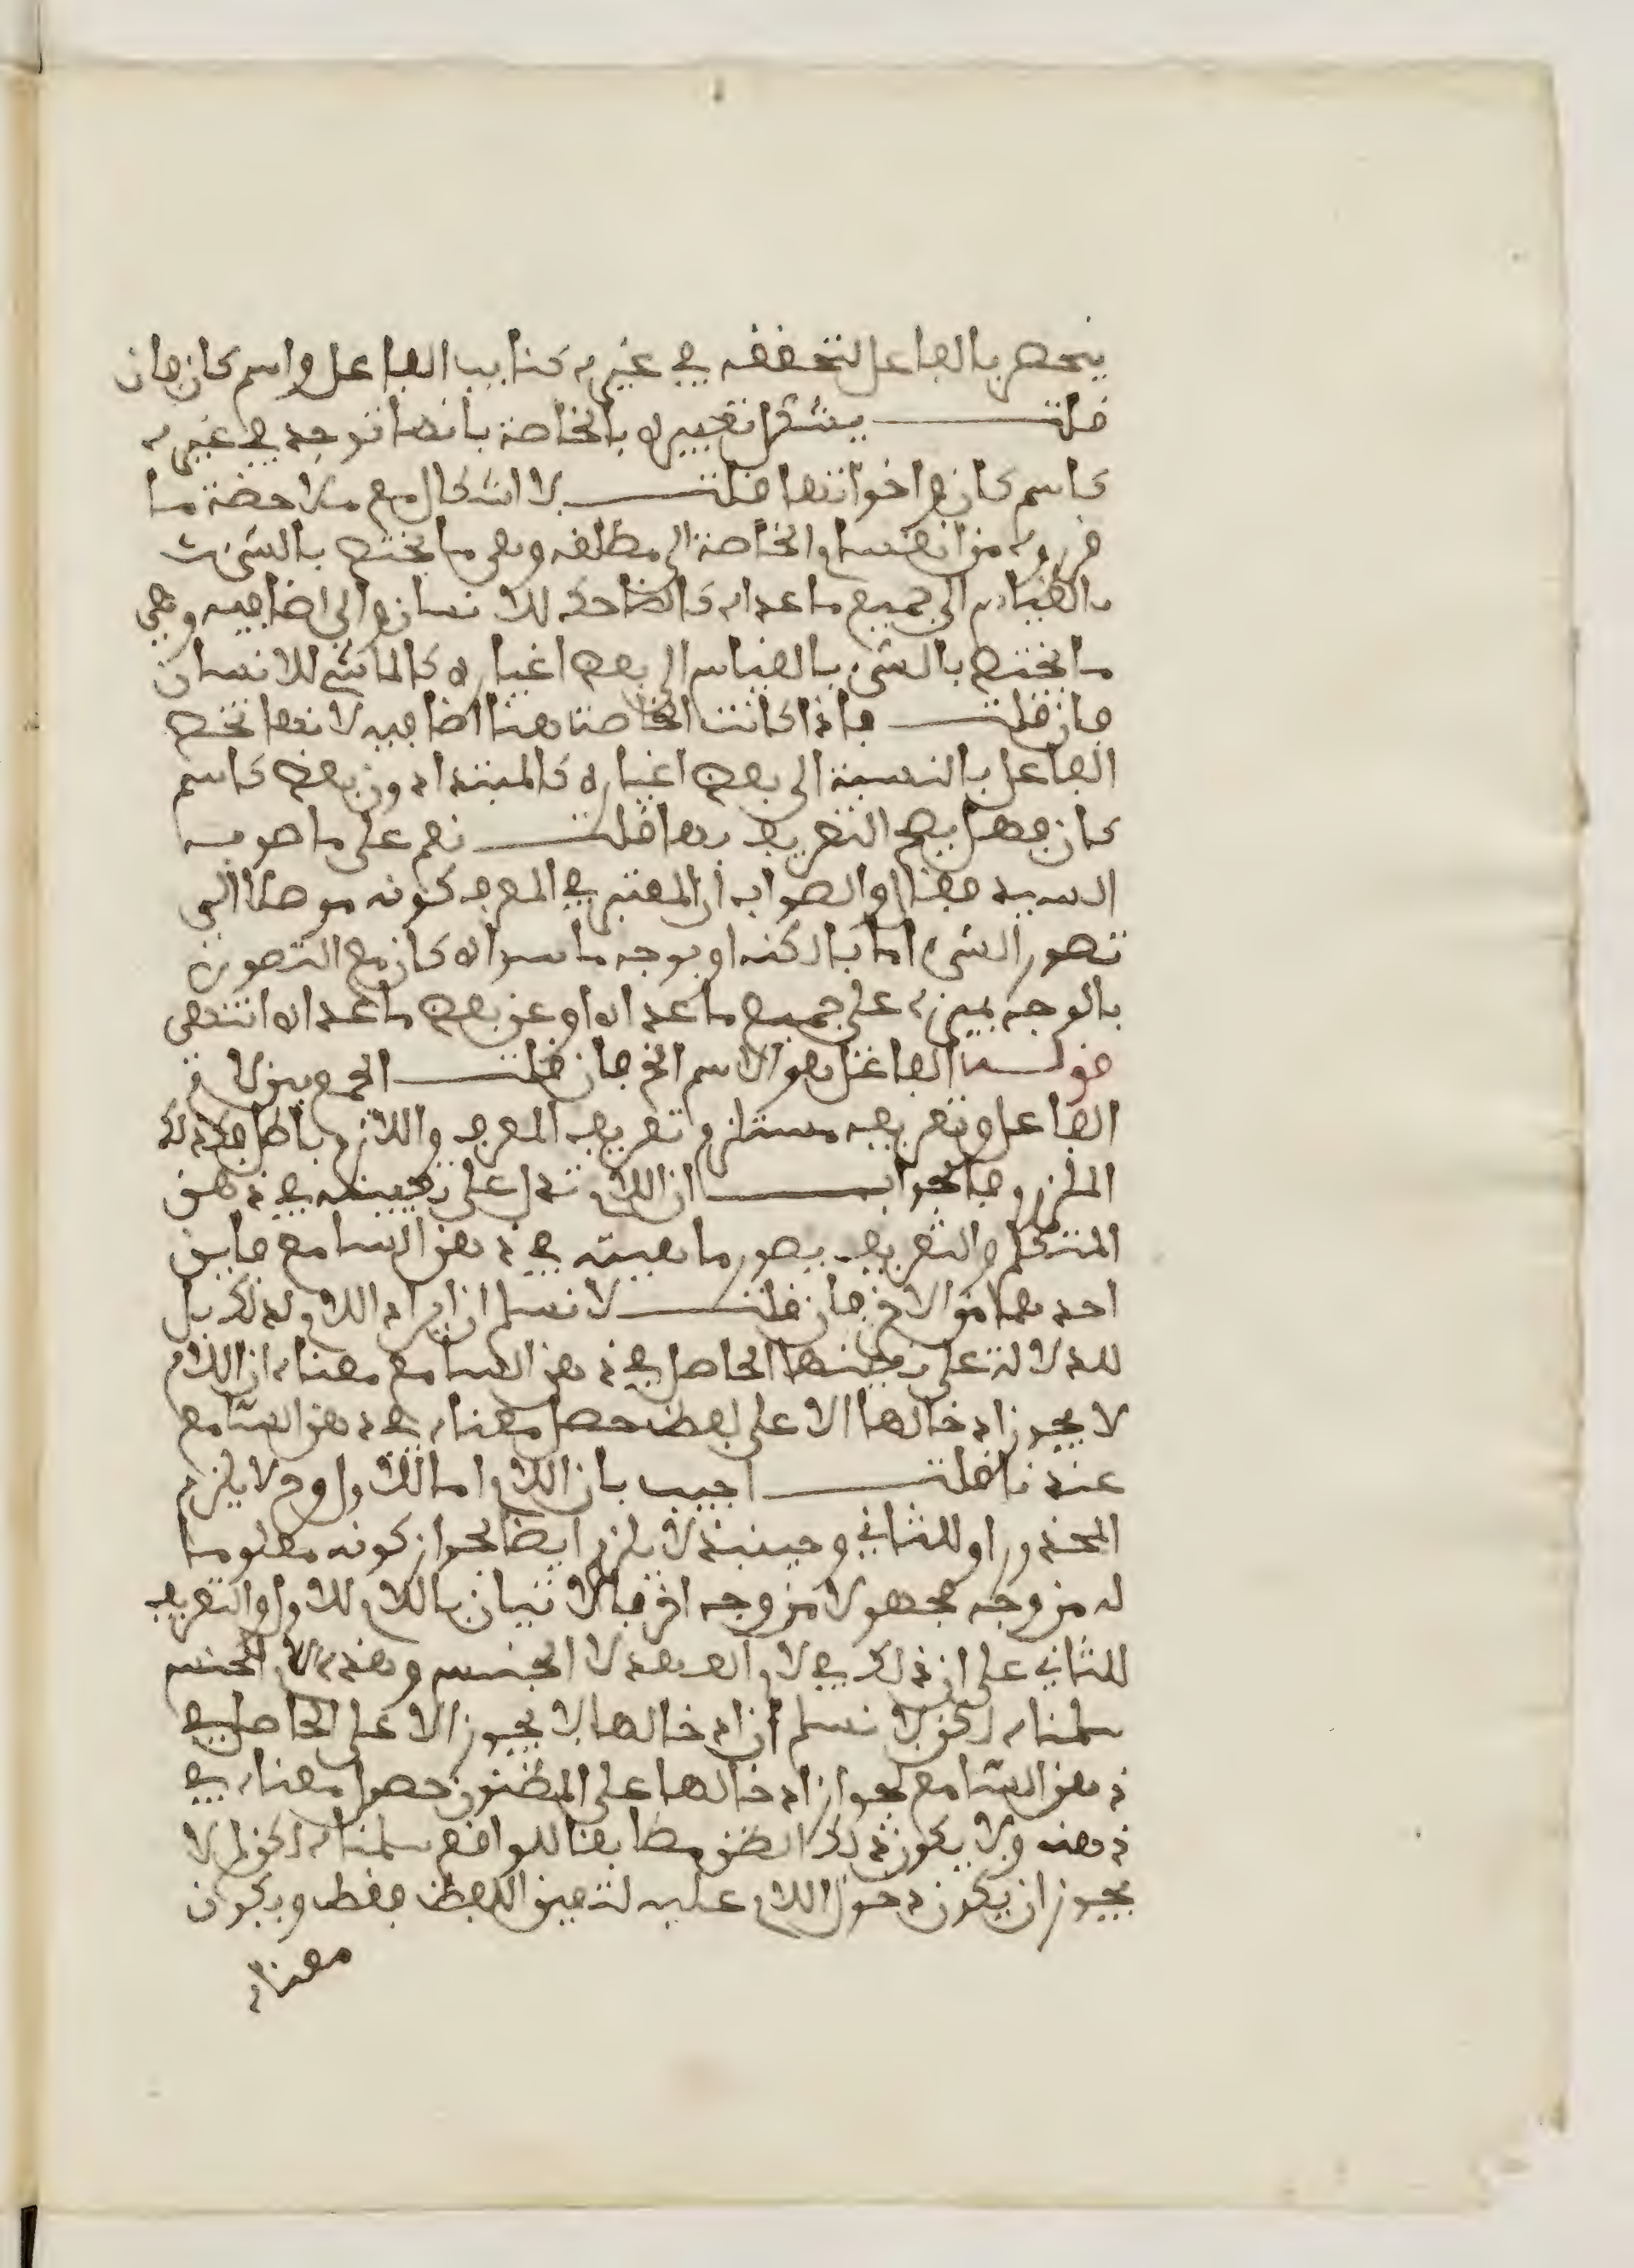 ينحصر بالفاعل لتحققه في غيره كنائب الفاعل واسم كان فان
قلت يشكل تعبيره بالخاصة بانها توجد في غيره
كاسم كان واخواتها قلت لا اشكال مع ملاحضة ما
قرروه من انقسام الخاصة الى مطلقه وهي ما يختص بالشيء
بالقياس الى جميع ما عداه كالضاحك للانسان والى اضافيه وهي
ما يختص بالشيء بالقياس الى بعض اغياره كالماشي للانسان
فان قلت فاذا كانت الخاصة هنا اضافيه لانها تخص
الفاعل بالنسبة الى بعض اغياره كالمبتدا دون بعض كاسم
كان فهل يصح التعريف بها قلت نعم على ما صوبه
السيد فقال والصواب ان المعتبر في المعرف كونه موصلا الى
تصور الشيء اما بالكنه او بوجه ما سواء كان مع التصور
بالوجه يميزه على جميع ما عداه او عن بعض ما عداه انتهى
قوله الفاعل هو الاسم الخ فان قلت الجمع بين لام
الفاعل وتعريفه مستلزم تعريف المعرف واللازم باطل فكذلك
الملزوم فالجواب ان اللام تدل على تعيينه في ذهن
المتكلم والتعريف يصور ماهيته في ذهن السامع فاين
احدهما من الاخر فان قلت لا نسلم ان ايراد اللام لذلك بل
للدلالة على تعيينها الحاصل في ذهن السامع معناه ان اللام
لا يجوز ادخالها الا على لفظ حصل معناه في ذهن السامع
عندنا قلت اجيب بان اللام اما للاول وح لا يلزم
المحذور او للثاني وحينئذ لا يلزم ايضا لجواز كونه معلوما
له من وجه مجهولا من وجه اخر فالاتيان باللام للاول والتعريف
للثاني على ان ذلك في لام العهد لا الجنس وهذه لام الجنس
سلمناه لكن لا نسلم ان ادخالها لا يجوز الا على الحاصل في
ذهن السامع لجواز ادخالها على المظنون حصول معناه في
ذهنه ولا يكون ذلك الظن مطابقا للواقع سلمناه لكن لم لا
يجوز ان يكون دخول اللام عليه لتعين اللفظ فقط ويكون
معناه